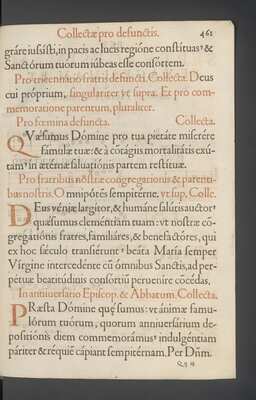 Collectæ pro defunctis. 461
gráre iussísti, in pacis ac lucis regióne constítuas, &
Sanctórum tuórum iúbeas esse consórtem.
Pro tricennario fratris defuncti. Collecta. Deus
cui próprium, singulariter vt supra. Et pro com-
memoratione parentum, pluraliter.
Pro fœmina defuncta. Collecta.
QVǽsumus Dómine pro tua pietáte miserére
fámulæ tuæ: & à cōtágiis mortalitátis exú-
tam, in ætérnæ saluatiónis partem restítuæ.
Pro fratribus nostræ congregationis & parenti-
bus nostris. Omnípotēs sempitérne. vt sup. Colle.
DEus véniæ largítor, & humánæ salútis auctor,
quǽsumus cleméntiam tuam: vt nostræ cō-
gregatiónis fratres, familiáres, & benefactóres, qui
ex hoc sǽculo transiérunt, beáta María semper
Vírgine intercedénte cū ómnibus Sanctis, ad per-
pétuæ beatitúdinis consórtiū peruenire cōcédas.
In anniuersario Episcop. & Abbatum. Collecta.
PRæsta Dómine quǽsumus: vt ánimæ famu-
lórum tuórum, quorum anniuersárium de-
positiónis diem commemorámus, indulgéntiam
páriter & réquiē cápiant sempitérnam. Per Dñm.